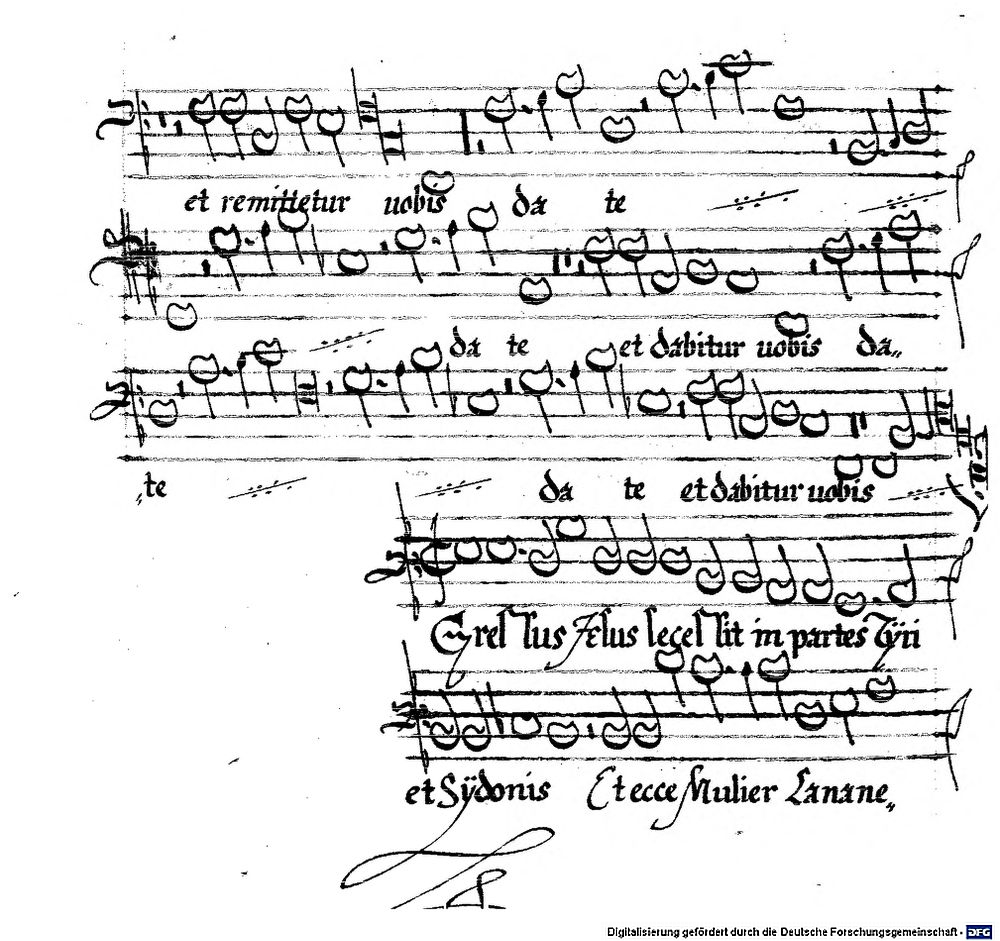 et remittetur uobis da te
da te et dabitur uobis da„
„te da te et dabitur uobis
Egressus Jesus secessit in partes Tÿri
et Sÿdonis Et ecce Mulier Canane„
Digitalisierung gefördert durch die Deutsche Forschungsgemeinschaft - DFG